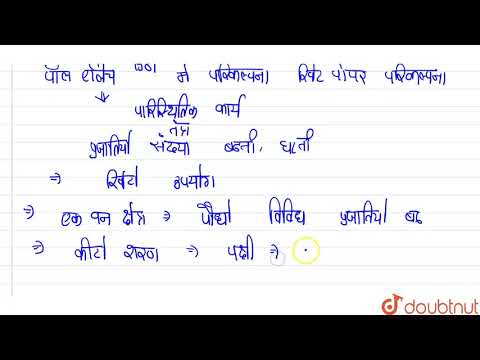 पॉल एर्लिच 1981 ने परिकल्पना रिवेट पोपर परिकल्पना
↓ पारिस्थितिक कार्य
तंत्र
प्रजातियों संख्या बढ़ती, घटती
⇒ रिवेटों उपयोग
⇒ एक वन क्षेत्र ⇒ पौधों विविध प्रजातियों बाद
⇒ कीटों शरण ⇒ पक्षी ⇒
doubtnut